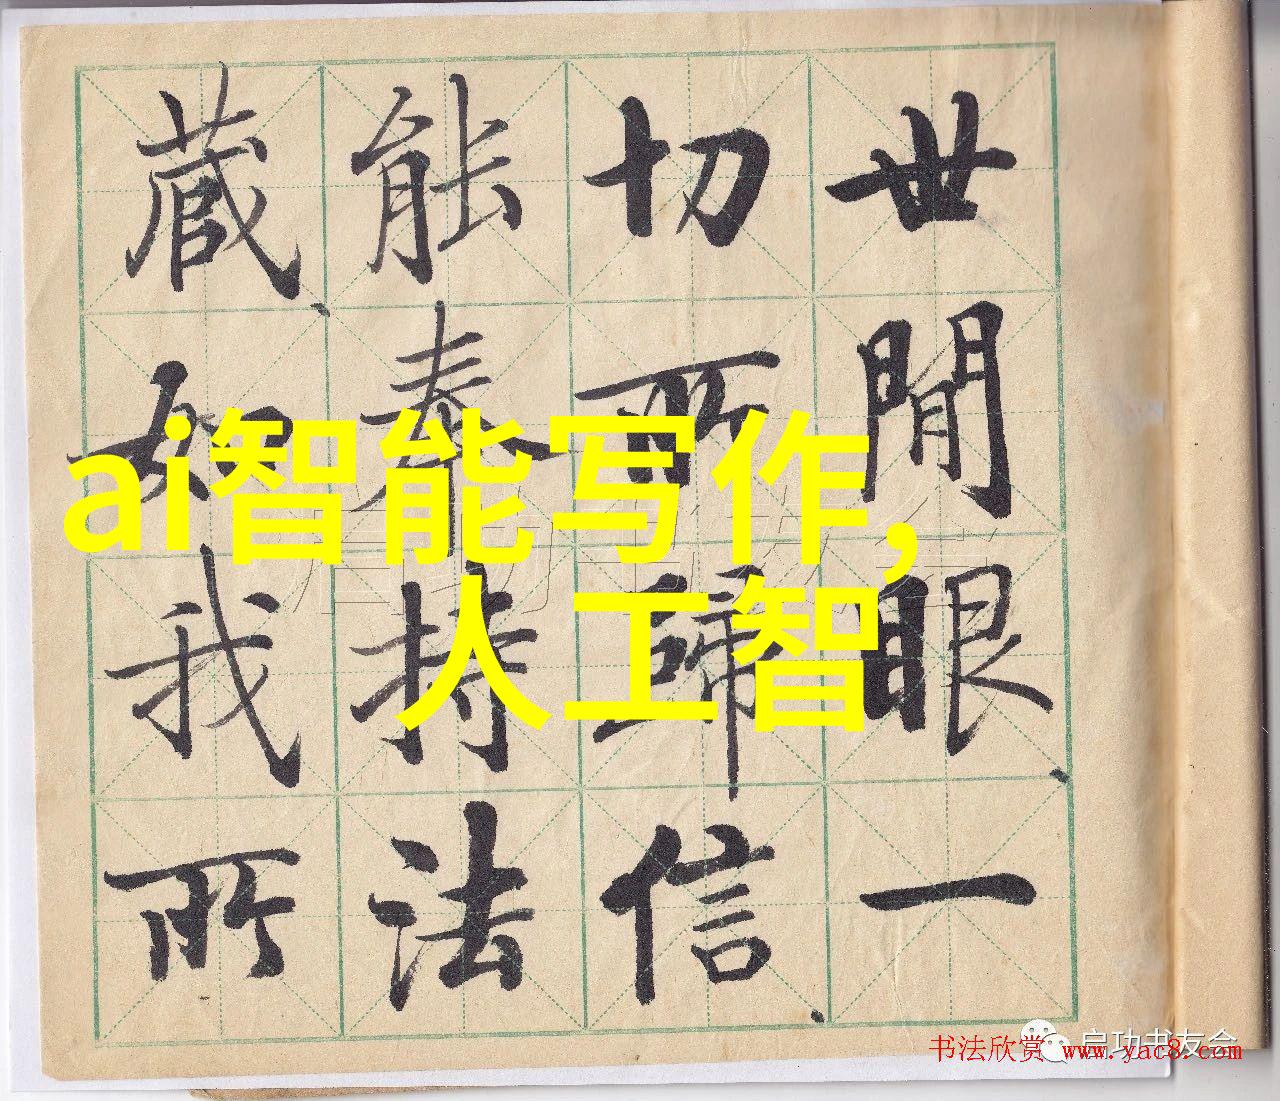 世間眼一
切所歸信
能奉持法
藏如我所
ai智能写作,
人工智
启功书友会
书法欣赏 www.yac8.com